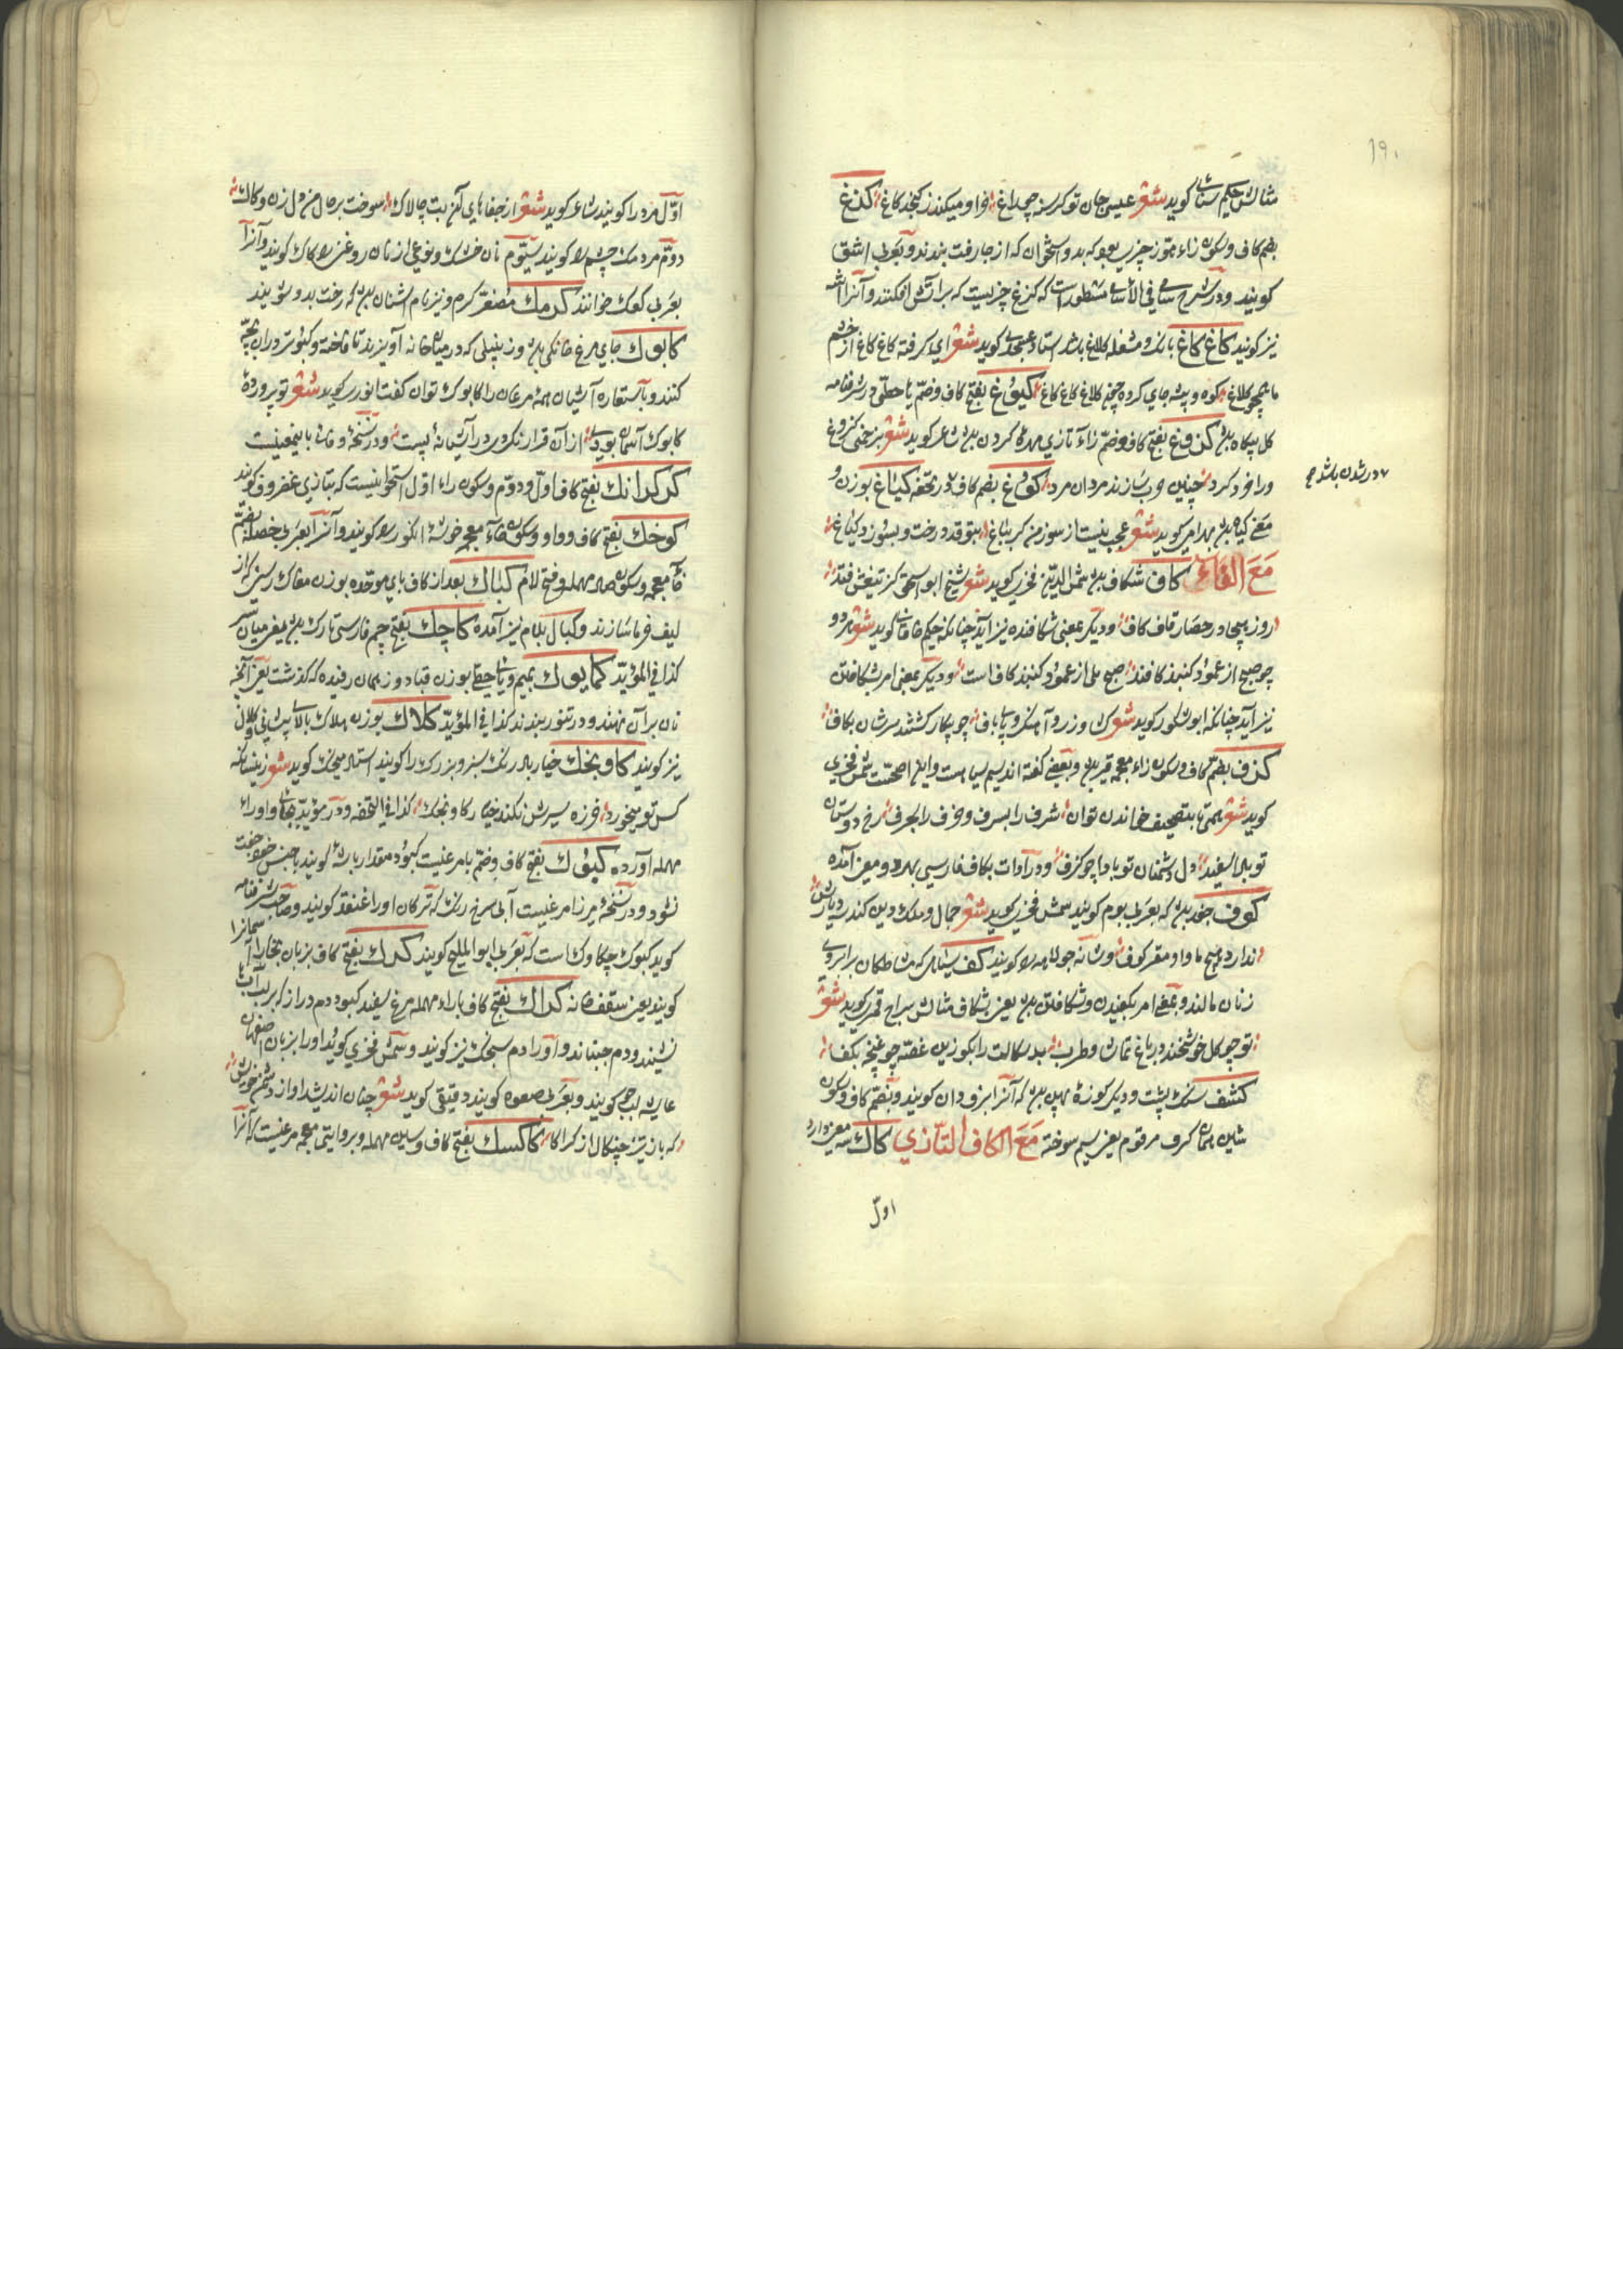 ۱۹۰
مثالش حکیم سنائی کوید شعر عیسی جان تو کرسنه چو زاغ خر او میکند ز کنجد کاغ کنغ
بضم کاف وسکون زاء متوز چیزی بود که بدو استخوان که از جا رفت بندند وبعربی اشق
کویند ودر شرح سامی فی الأسامی مسطور است که کنغ چزیست که بر آتش افکنند وآنرا اشه
نیز کویند کاغ کاغ بانک ومشغله کلاغ باشد استاد عسجدی کوید شعر ای کرفته کاغ کاغ از خشم
ما همچو کلاغ کوه وبیشه جای کرده چون کلاغ کاغ کاغ کیوغ بفتح کاف وضم یا حطی در شرفنامه
کل پیکاه بود کزوغ بفتح کاف وضم زاء تازی مهره کردن بود شاعر کوید شعر بزخمی کزوغ
ورا خرد کرد چنین حرب سازند مردان مرد کوغ بضم کاف در تحفه کیاغ بوزن و
۷ درشدن باشد ح
معنی کیاه بود بهرامی کوید شعر عجب نیست از سوز من کر بباغ بتوقد درخت وبسوزد کیاغ
مع الفاء کاف شکاف بود شمس الدین فخری کوید شعر شیخ ابو اسحق کز تیغش فتد
روز هیجا در حصار قاف کاف ودیکر بمعنی شکافنده نیز آید چنانکه حکیم خاقانی کوید شعر هر دو
چو صبح از عمود کنبد کافند صبح بلی از عمود کنبد کاف است ودیکر بمعنی امر بشکافتن
نیز آید چنانکه ابو شکور کوید شعر وز رو آهنک وپای باف چو بیکار کشتند سرشان بکاف
کزف بضم کاف وسکون زاء معجمه قیر بود وبعضی کفته اند سیم سیاهست واین اصحست شمس فخری
کوید شعر همتها بتصحیف خواندن توان شرف را بسرف وخزف را بجرف رخ دوستان
تو بها سفید دل دشمنان تو بادا چو کزف ودر ادات بکاف فارسی بهر دو معنی آمده
کوف جغد بود که بعربی بوم کویند شمس فخری کوید شعر جمال وملک ودین کندر دیارش
ندارد هیچ ماوا ومقر کوف وشانه جولاهه را کویند کف سیاهی که مشاطکان بر ابروی
زنان مالند وبمعنی امر بکفیدن وشکافتن بود یعنی بشکاف مثالش سراج قمری کوید شعر
تو چو کل خوش بخند در باغ نشاط وطرب بد سکالت را بکو زین غصه چو غنچه بکف
کشف سنک پشت ودیکر کوزه پهن بود که آنرا برفودان کویند وبضم کاف وسکون
شین همان کرف مرقوم یعنی سیم سوخته مع الکاف التازی کاک سه معنی دارد
اول
اول مرد را کویند شاعر کوید شعر از جفاهای آن بت چالاک سوخت بر حال من دل زن وکاک
دوم مردمک چشم را کویند سیوم نان خشک ونوعی از نان روغنی را کاک کویند وآنرا
بعربی کعک خوانند کرمک مصغر کرم ونیز نام اشنان بود که رخت بدو شویند
کابوک جای مرغ خانکی بود وزنبیلی که در میان خانه آویزند تا فاخته وکبوتر در آن بچه
کنند وباستعاره آشیان همه مرغان را کابوک توان کفت انوری کوید شعر تو پرورده
کابوک آسمان بودی از آن قرار نکردی در آشیانه پست ودر نسخه وفائی باینمعنیست
کرکرانک بفتح کاف اول ودوم وسکون راء اول استخوانیست که بتازی غضروف کویند
کوخک بفتح کاف وواو وسکون خاء معجمه خوشه انکور را کویند وآنرا بعربی خصله بضم
خاء معجمه وسکون صاد مهمله وفتح لام کباک بعد از کاف بای موحده بوزن مغاک رسنی که از
لیف خرما سازند وکبال بلام نیز آمده کاچک بفتح جیم فارسی تارک بود یعنی میان سر
کذا فی المؤید کمایوک بمیم ویای حطی بوزن قبا دوز همان رفیده که کذشت یعنی آنچه
نان بر آن نهند ودر تنور بندند کذا فی المؤید کلاک بوزن هلاک بالای پیشانی وکلال
نیز کویند کاوبخک خیار بالدرنک سبز وبزرک را کویند استاد منجیک کوید شعر زینسانکه
کس تو میخورد خرزه سیرش نکند خیار کاوبخک کذا فی التحفه ودر مؤید بجای واو راء
مهمله آورده کبوک بفتح کاف وضم با مرغیست کبود مقدار باشه کویند با جنس خود جفت
نشود ودر نسخه میرزا مرغیست آبی سرخ رنک که ترکان او را غنقد کویند وصاحب شرفنامه
کوید کبوک چکاوک است که بعربی ابو الملیح کویند کدک بفتح کاف بزبان بخارا آسمانرا
کویند یعنی سقف خانه کراک بفتح کاف با راء مهمله مرغ سفید کبود دم دراز که بر لب آب ها
نشیند ودم جنباند واو را دم سیجک نیز کویند وشمس فخری کوید او را بزبان اصفهان
عایشه لبجو کویند وبعربی صعوه کویند دقیقی کوید شعر چنان اندیشد او از دشمن خویش
که باز تیز چنکال از کراکا کاکسک بفتح کاف وسین مهمله وبروایتی معجمه مرغیست که آنرا